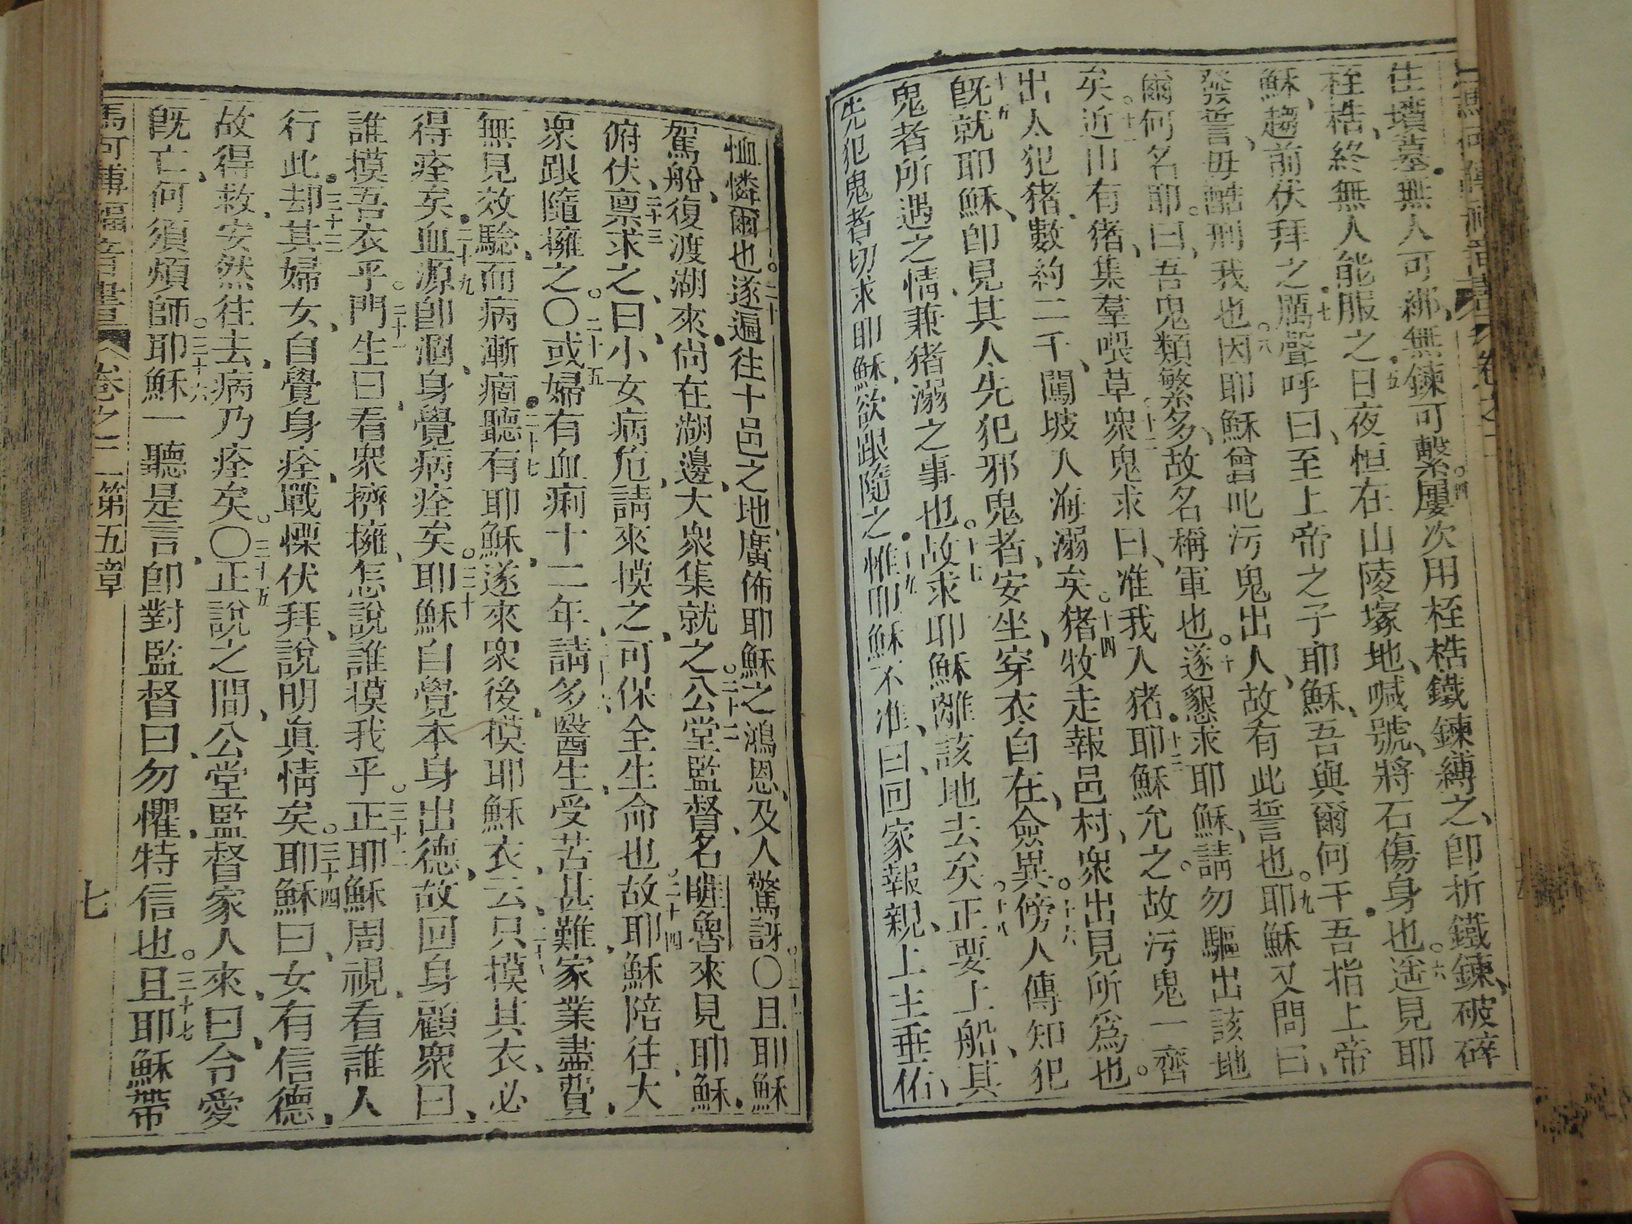 住墳墓無人可綁無鍊可繫四屢次用桎梏鐵鍊縛之卽折鐵鍊破碎
桎梏終無人能服之五日夜恒在山陵塚地喊號將石傷身也六遥見耶
穌趨前伏拜之七厲聲呼曰至上帝之子耶穌吾與爾何干吾指上帝
發誓毋酷刑我也八因耶穌曾叱污鬼出人故有此誓也九耶穌又問曰
爾何名耶曰吾鬼類繁多故名稱軍也十遂懇求耶穌請勿驅出該地
矣十一近山有猪集羣喂草十二衆鬼求曰准我入猪十三耶穌允之故污鬼一齊
出人犯猪數約二千闖坡入海溺矣十四猪牧走報邑村衆出見所爲也
十五旣就耶穌卽見其人先犯邪鬼者安坐穿衣自在僉異十六傍人傳知犯
鬼者所遇之情兼猪溺之事也十七故求耶穌離該地去矣十八正要上船其
先犯鬼者切求耶穌欲跟隨之十九惟耶穌不准曰回家報親上主垂佑
恤憐爾也二十遂遍往十邑之地廣佈耶穌之鴻恩及人驚訝〇二十一且耶穌
駕船復渡湖來尙在湖邊大衆集就之二十二公堂監督名睚魯來見耶穌
俯伏二十三稟求之曰小女病危請來摸之可保全生命也二十四故耶穌陪往大
衆跟隨擁之〇二十五或婦有血痢十二年二十六請多醫生受苦甚難家業盡費
無見效騐而病漸痼二十七聽有耶穌遂來衆後摸耶穌衣二十八云只摸其衣必
得痊矣二十九血源卽涸身覺病痊矣三十耶穌自覺本身出德故回身顧衆曰
誰摸吾衣乎三十一門生曰看衆擠擁怎說誰摸我乎三十二正耶穌周視看誰人
行此三十三却其婦女自覺身痊戰慄伏拜說明眞情矣三十四耶穌曰女有信德
故得救安然往去病乃痊矣〇三十五正說之間公堂監督家人來曰令愛
旣亡何須煩師三十六耶穌一聽是言卽對監督曰勿懼特信也三十七且耶穌帶
馬可傳福音書 卷之二 第五章 七